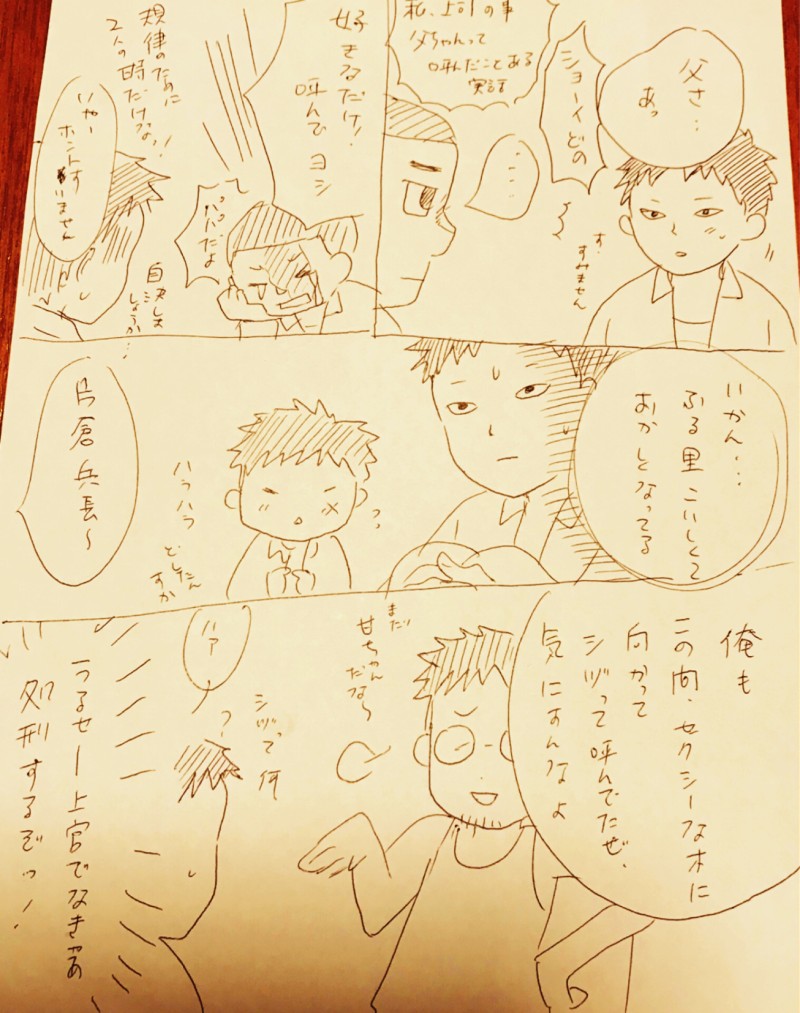 父さ…
あっ
ショーイどの
す、
すみません
私、上司の事
父ちゃんって
呼んだことある
実話
…
好きなだけ!
呼んで ヨシ
パパだよ
規律のために
2人の時だけな!!
いやー
ホントす
いません
自決しま
しょうか…
いかん…
ふる里こいしくて
おかしくなってる
ハラハラ
どしたん
すか
片倉兵長〜
俺も
この間、セクシーな木に
向かって
シヅって呼んでたぜ、
気にすんなよ
まだ
甘ちゃん
だな〜
ハァ
シヅって何
?
うるセー上官でなきゃあ
処刑するぞっ!